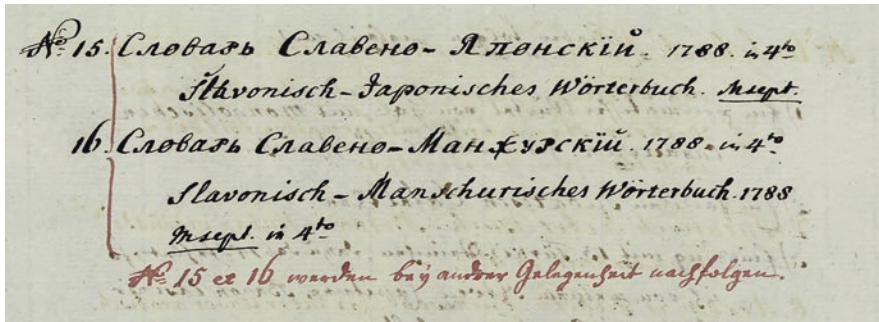 No 15. Словарь Славено-Японскїй. 1788. in 4to
Slavonisch-Japonisches Wörterbuch. Mscpt.
16. Словарь Славено-Манжурскїй. 1788. in 4to
Slavonisch-Manschurisches Wörterbuch. 1788
Mscpt. in 4to
No 15 et 16 werden bey andrer Gelegenheit nachfolgen.